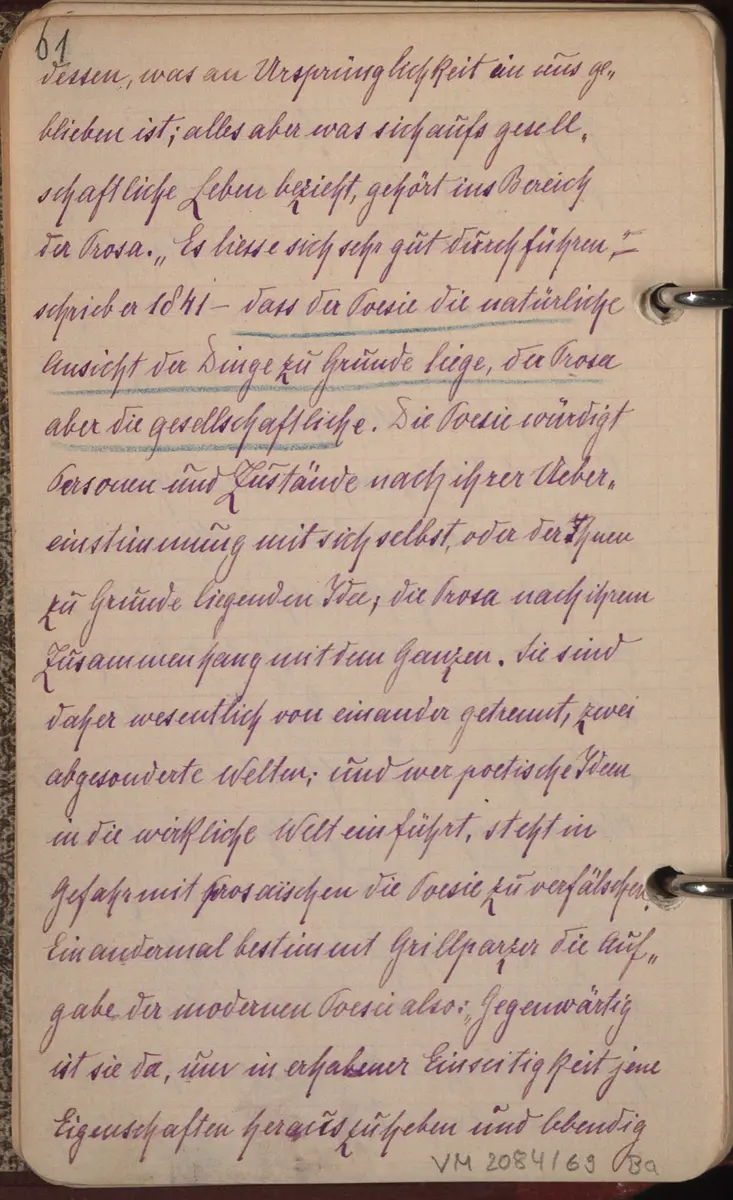 61
dessen, was an Ursprünglichkeit in uns ge„
blieben ist; alles aber was sich aufs gesell„
schaftliche Leben bezieht, gehört ins Bereich
der Prosa. „Es liesse sich sehr gut durchführen," –
schrieb er 1841 – dass der Poesie die natürliche
Ansicht der Dinge zu Grunde liege, der Prosa
aber die gesellschaftliche. Die Poesie würdigt
Personen und Zustände nach ihrer Ueber„
einstimmung mit sich selbst, oder der Ihnen
zu Grunde liegenden Idee; die Prosa nach ihrem
Zusammenhang mit dem Ganzen. Sie sind
daher wesentlich von einander getrennt, zwei
abgesonderte Welten; und wer poetische Ideen
in die wirkliche Welt einführt, steht in
Gefahr mit prosaischen die Poesie zu verfälschen.
Ein andermal bestimmt Grillparzer die Auf„
gabe der modernen Poesie also: „Gegenwärtig
ist sie da, um in erhabener Einseitigkeit jene
Eigenschaften herauszuheben und lebendig
VM 2084/69 Ba